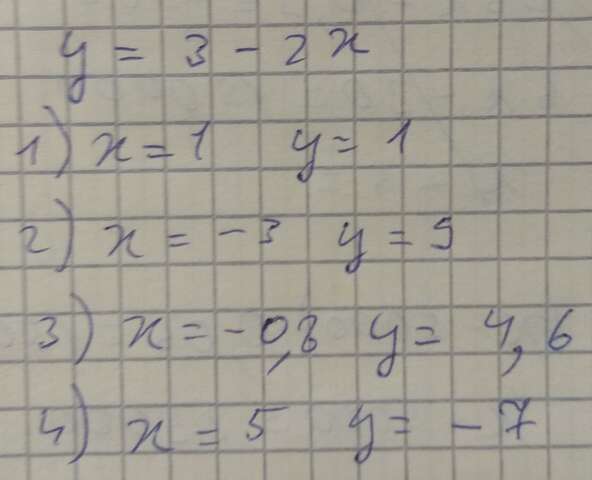 y = 3 - 2x
1) x = 1 y = 1
2) x = -3 y = 9
3) x = -0,8 y = 4,6
4) x = 5 y = -7